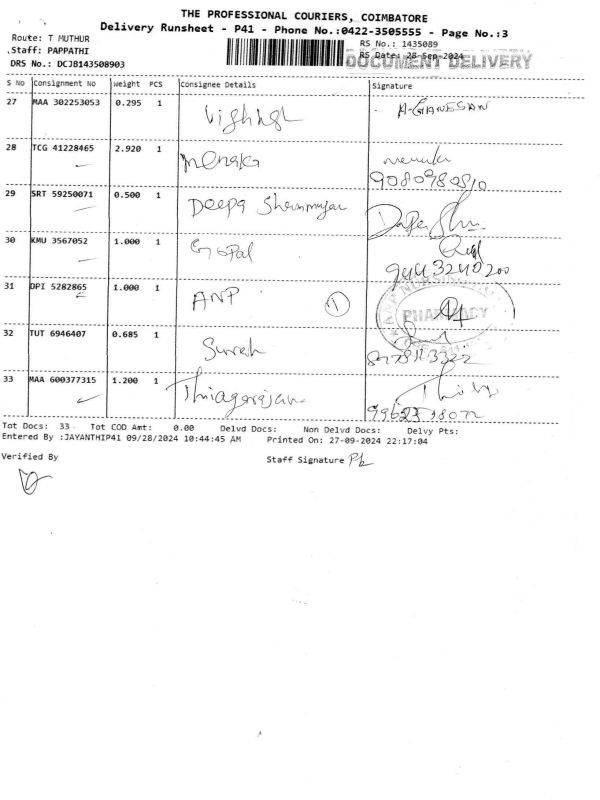 THE PROFESSIONAL COURIERS, COIMBATORE
Delivery Runsheet - P41 - Phone No.:0422-3505555 - Page No.:3
Route: T MUTHUR
RS No.: 1435089
.Staff: PAPPATHI
RS Date: 28-Sep-2024
DOCUMENT DELIVERY
DRS No.: DCJB143508903
S No Consignment No Weight PCS Consignee Details Signature
27 MAA 302253053 0.295 1 A-GANESAN
28 TCG 41228465 2.920 1 menaka
9080980810
29 SRT 59250071 0.500 1 Deepa
30 KMU 3567052 1.000 1 Gopal
9443240200
31 DPI 5282865 1.000 1 ANP 1
PHARMACY
32 TUT 6946407 0.685 1 Suresh
33 MAA 600377315 1.200 1 Thiagarajan
Tot Docs: 33 Tot COD Amt: 0.00 Delvd Docs: Non Delvd Docs: Delvy Pts:
Entered By :JAYANTHIP41 09/28/2024 10:44:45 AM Printed On: 27-09-2024 22:17:04
Verified By
Staff Signature